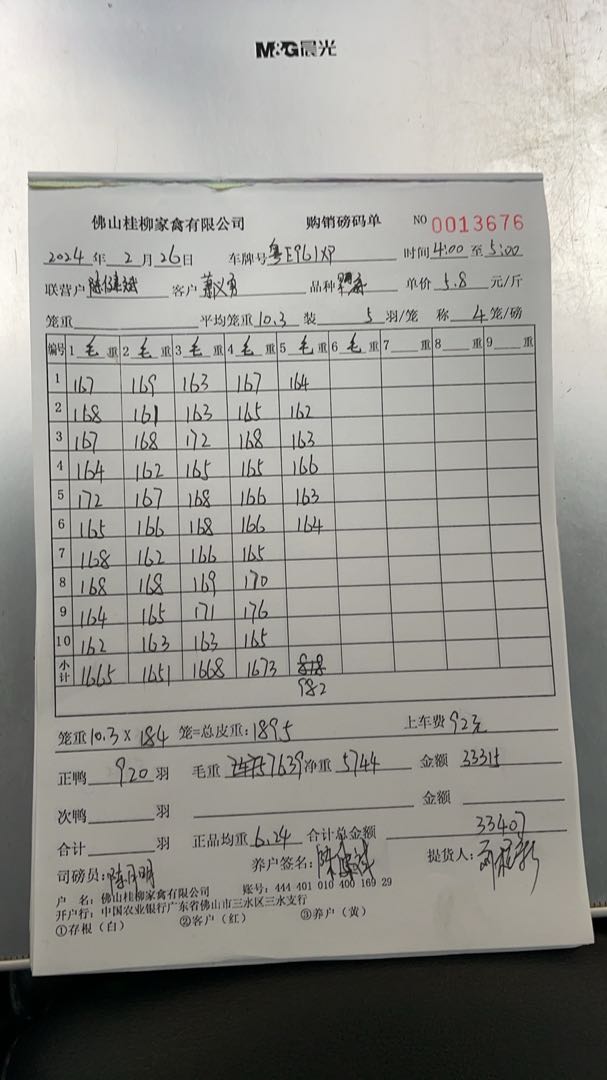 M&G晨光
佛山桂柳家禽有限公司 购销磅码单 NO 0013676
2024 年 2 月 26 日 车牌号 粤E961XP 时间 4:00 至 5:00
联营户 客户 萧义勇 品种 单价 5.8 元/斤
笼重 平均笼重 10.3 装 5 羽/笼 称 4 笼/磅
编号 1 毛 重 2 毛 重 3 毛 重 4 毛 重 5 毛 重 6 毛 重 7 重 8 重 9 重
1 167 169 163 167 164
2 168 161 163 165 162
3 167 168 172 168 163
4 164 162 165 165 166
5 172 167 168 166 163
6 165 166 168 166 164
7 168 162 166 165
8 168 168 169 170
9 164 165 171 176
10 162 163 163 165
小计 1665 1651 1668 1673 818
982
笼重 10.3 × 184 笼=总皮重: 1895 上车费 92元
正鸭 920 羽 毛重 7639 净重 5744 金额 33315
次鸭 羽 金额
合计 羽 正品均重 6.24 合计总金额 33407
司磅员: 陈月明 养户签名: 提货人:
户 名: 佛山桂柳家禽有限公司 账号: 444 401 010 400 169 29
开户行: 中国农业银行广东省佛山市三水区三水支行
①存根(白) ②客户(红) ③养户(黄)